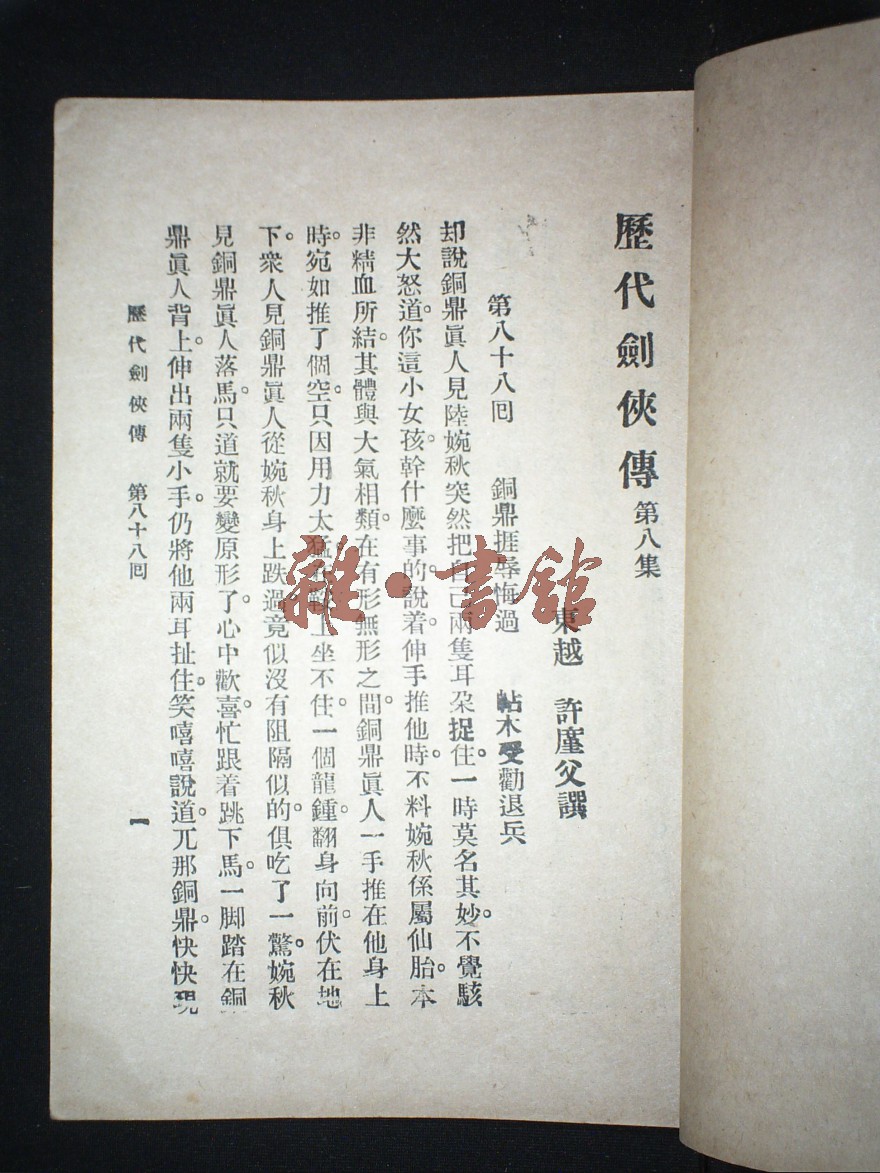 歷代劍俠傳 第八集
東越 許廑父譔
第八十八回 銅鼎捱辱悔過 帖木受勸退兵
却說銅鼎眞人見陸婉秋突然把自己兩隻耳朶捉住。一時莫名其妙。不覺駭
然大怒道。你這小女孩。幹什麼事的。說着。伸手推他時。不料婉秋係屬仙胎。本
非精血所結。其體與大氣相類。在有形無形之間。銅鼎眞人一手推在他身上
時。宛如推了個空。只因用力太猛。上坐不住。一個龍鍾。翻身向前。伏在地
下。衆人見銅鼎眞人從婉秋身上跌過。竟似沒有阻隔似的。俱吃了一驚。婉秋
見銅鼎眞人落馬。只道就要變原形了。心中歡喜。忙跟着跳下馬。一脚踏在銅
鼎眞人背上。伸出兩隻小手。仍將他兩耳扯住。笑嘻嘻說道。兀那銅鼎。快快現
歷代劍俠傳 第八十八回 一
雜·書館